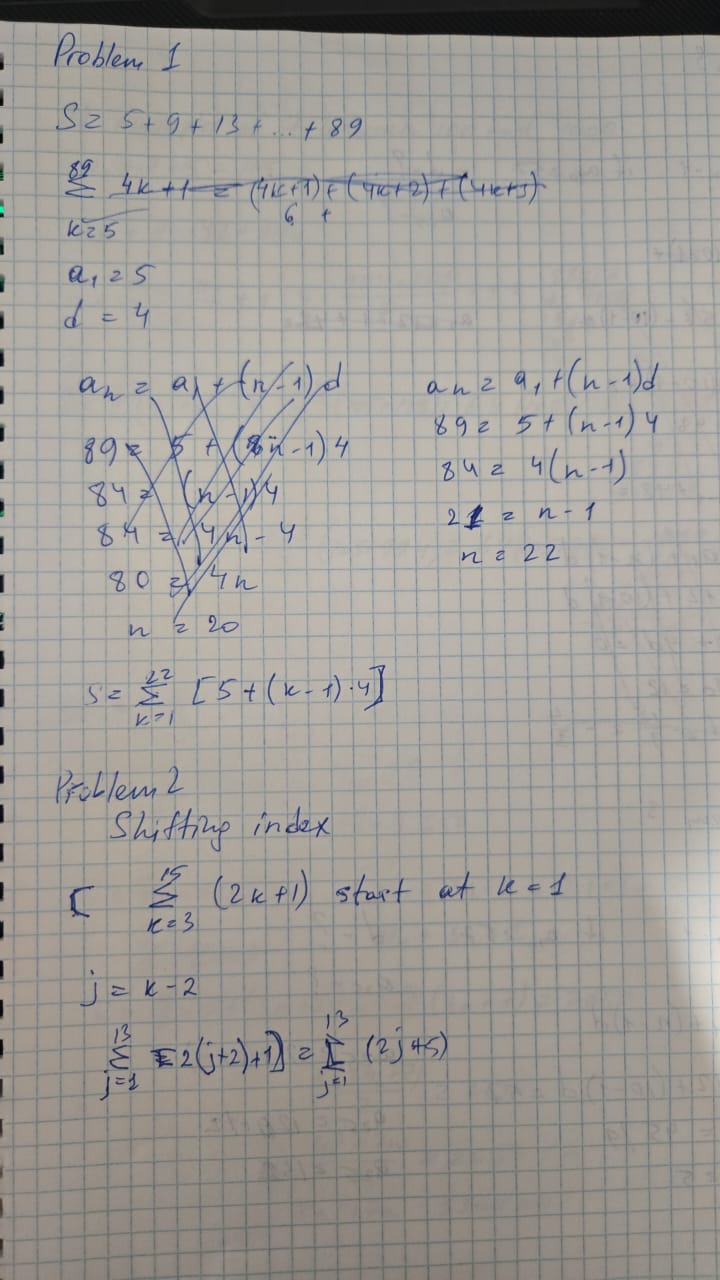 Problem 1
S = 5 + 9 + 13 + ... + 89
89
Σ 4k + 1 = (4k+1) + (4k+2) + (4k+3)
k=5
6 +
a₁ = 5
d = 4
aₙ = a₁ + (n-1) d
89 = 5 + (n-1) 4
84 = (n-1) 4
84 = 4n - 4
80 = 4n
n = 20
aₙ = a₁ + (n-1)d
89 = 5 + (n-1) 4
84 = 4(n-1)
21 = n - 1
n = 22
22
S = Σ [5 + (k-1)·4]
k=1
Problem 2
Shifting index
15
[ Σ (2k+1) start at k = 1
k=3
j = k - 2
13 13
Σ [2(j+2)+1] = Σ (2j+5)
j=1 j=1